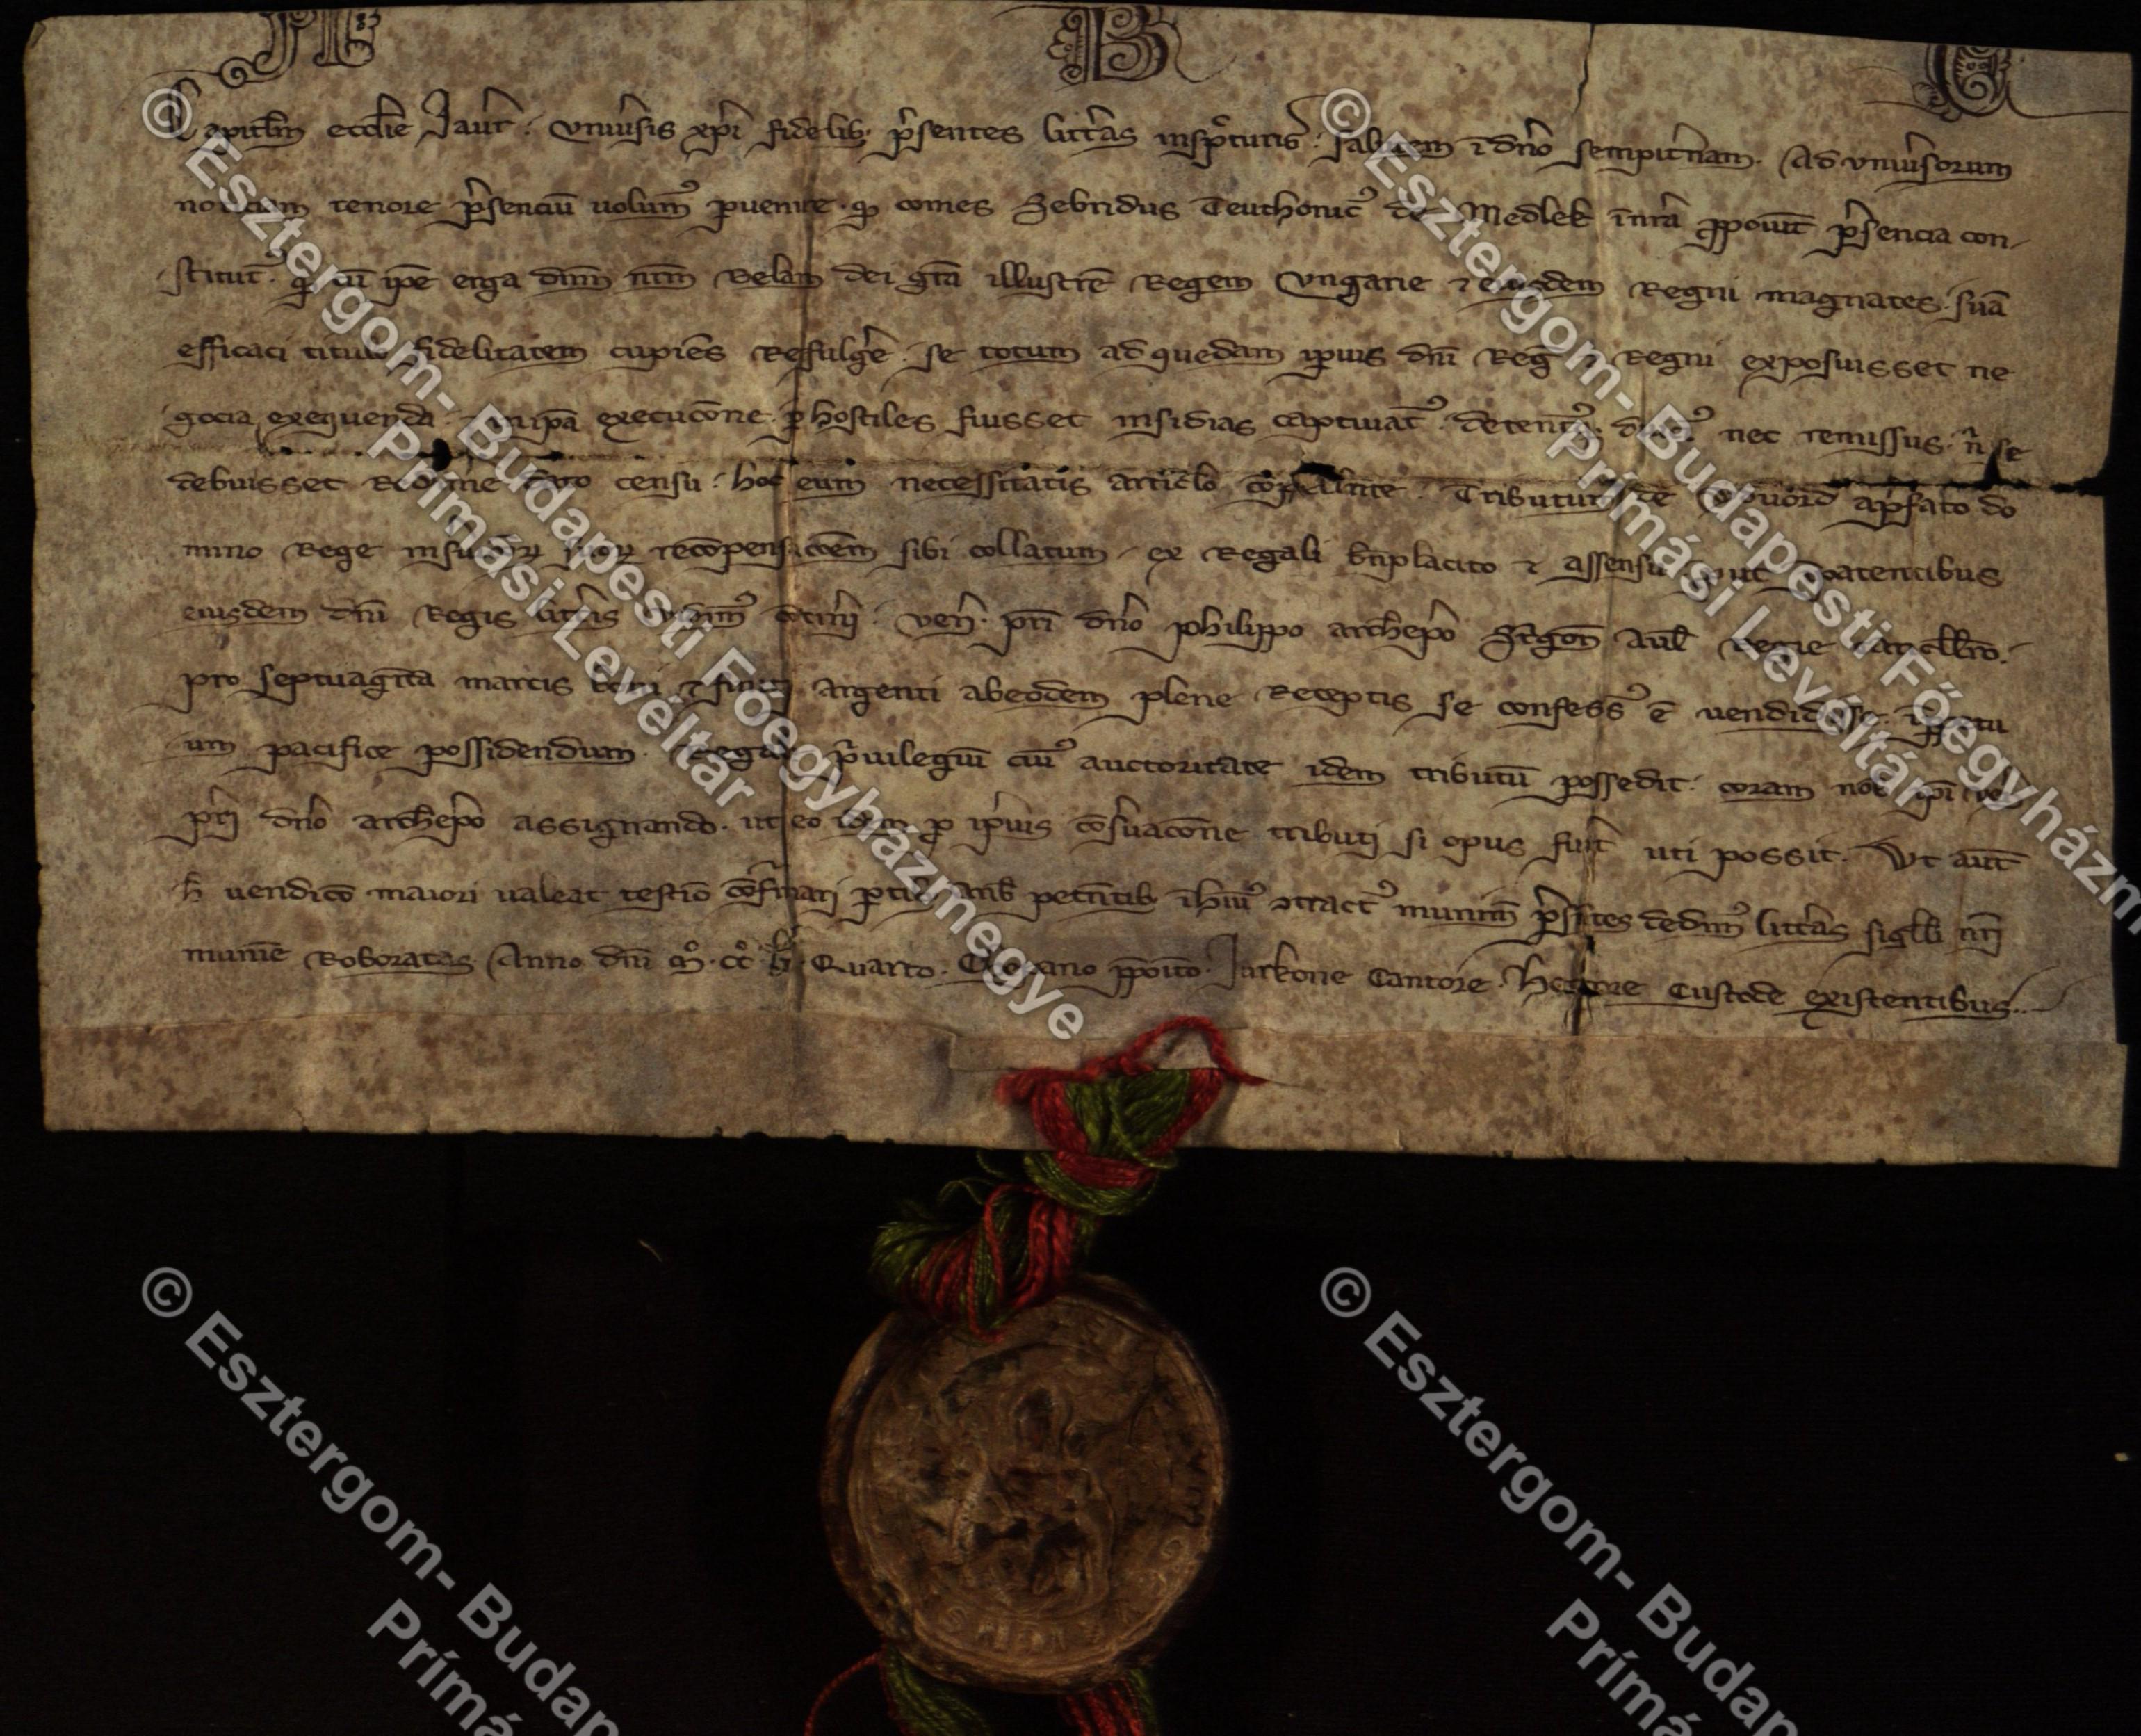 A B C
Capitlm ecclie Jaur. Vniusis xpi fidelib. psentes litteras inspecturis. salutem i dno sempitnam. Ad vniusorum
noticiam tenore psenciu uolum puenire. qd comes Zebridus Teuthonic de Medlek in nra pposuit psencia con-
stitut. qd cu ipe erga dnm nrm Belam dei gra illustre Regem Vngarie et eiusdem Regni magnates. sua
efficaci titulo fidelitatem cupies Refulgere. se totum ad quedam ipius dni Reg et Regni exposuisset ne
gocia exequenda. in ipa execucone p hostiles fuisset insidias captiuat. detent. nec remissus. ni se
debuisset Redimere censu. hoc eum necessitatis articlo copellente. Tributum de apfato do
mino Rege in suor recompensacoem sibi collatum. ex Regali bnplacito et assensu put patentibus
eiusdem dni Regis littis uidim contineri. ven. pri dno philippo archiepo Strigon aule Regie cancellario.
pro septuaginta marcis boni et fini argenti ab eodem plene Receptis se confess e vendidisse. ippetu
um pacifice possidendum. Regium priuilegiu cui auctoritate idem tributu possedit. coram nob ipi ven
pri dno archiepo assignando. ut eo idem p ipius consuacone tributi si opus fuit uti possit. Vt aut
h vendico maiori ualeat testio confirmari petentib i hui contract munim psentes dedim litteras sigilli nri
munie Roboratas Anno dni m. cc. lx. Quarto. Cipriano pposito. Jarkone Cantore. Hectore Custode existentibus.
© Esztergom- Budapesti Főegyházmegye
Prímási Levéltár
© Esztergom- Budapesti Főegyházm
Prímási Levéltár
© Esztergom- Budap
Prímá
© Esztergom- Budap
Prímá